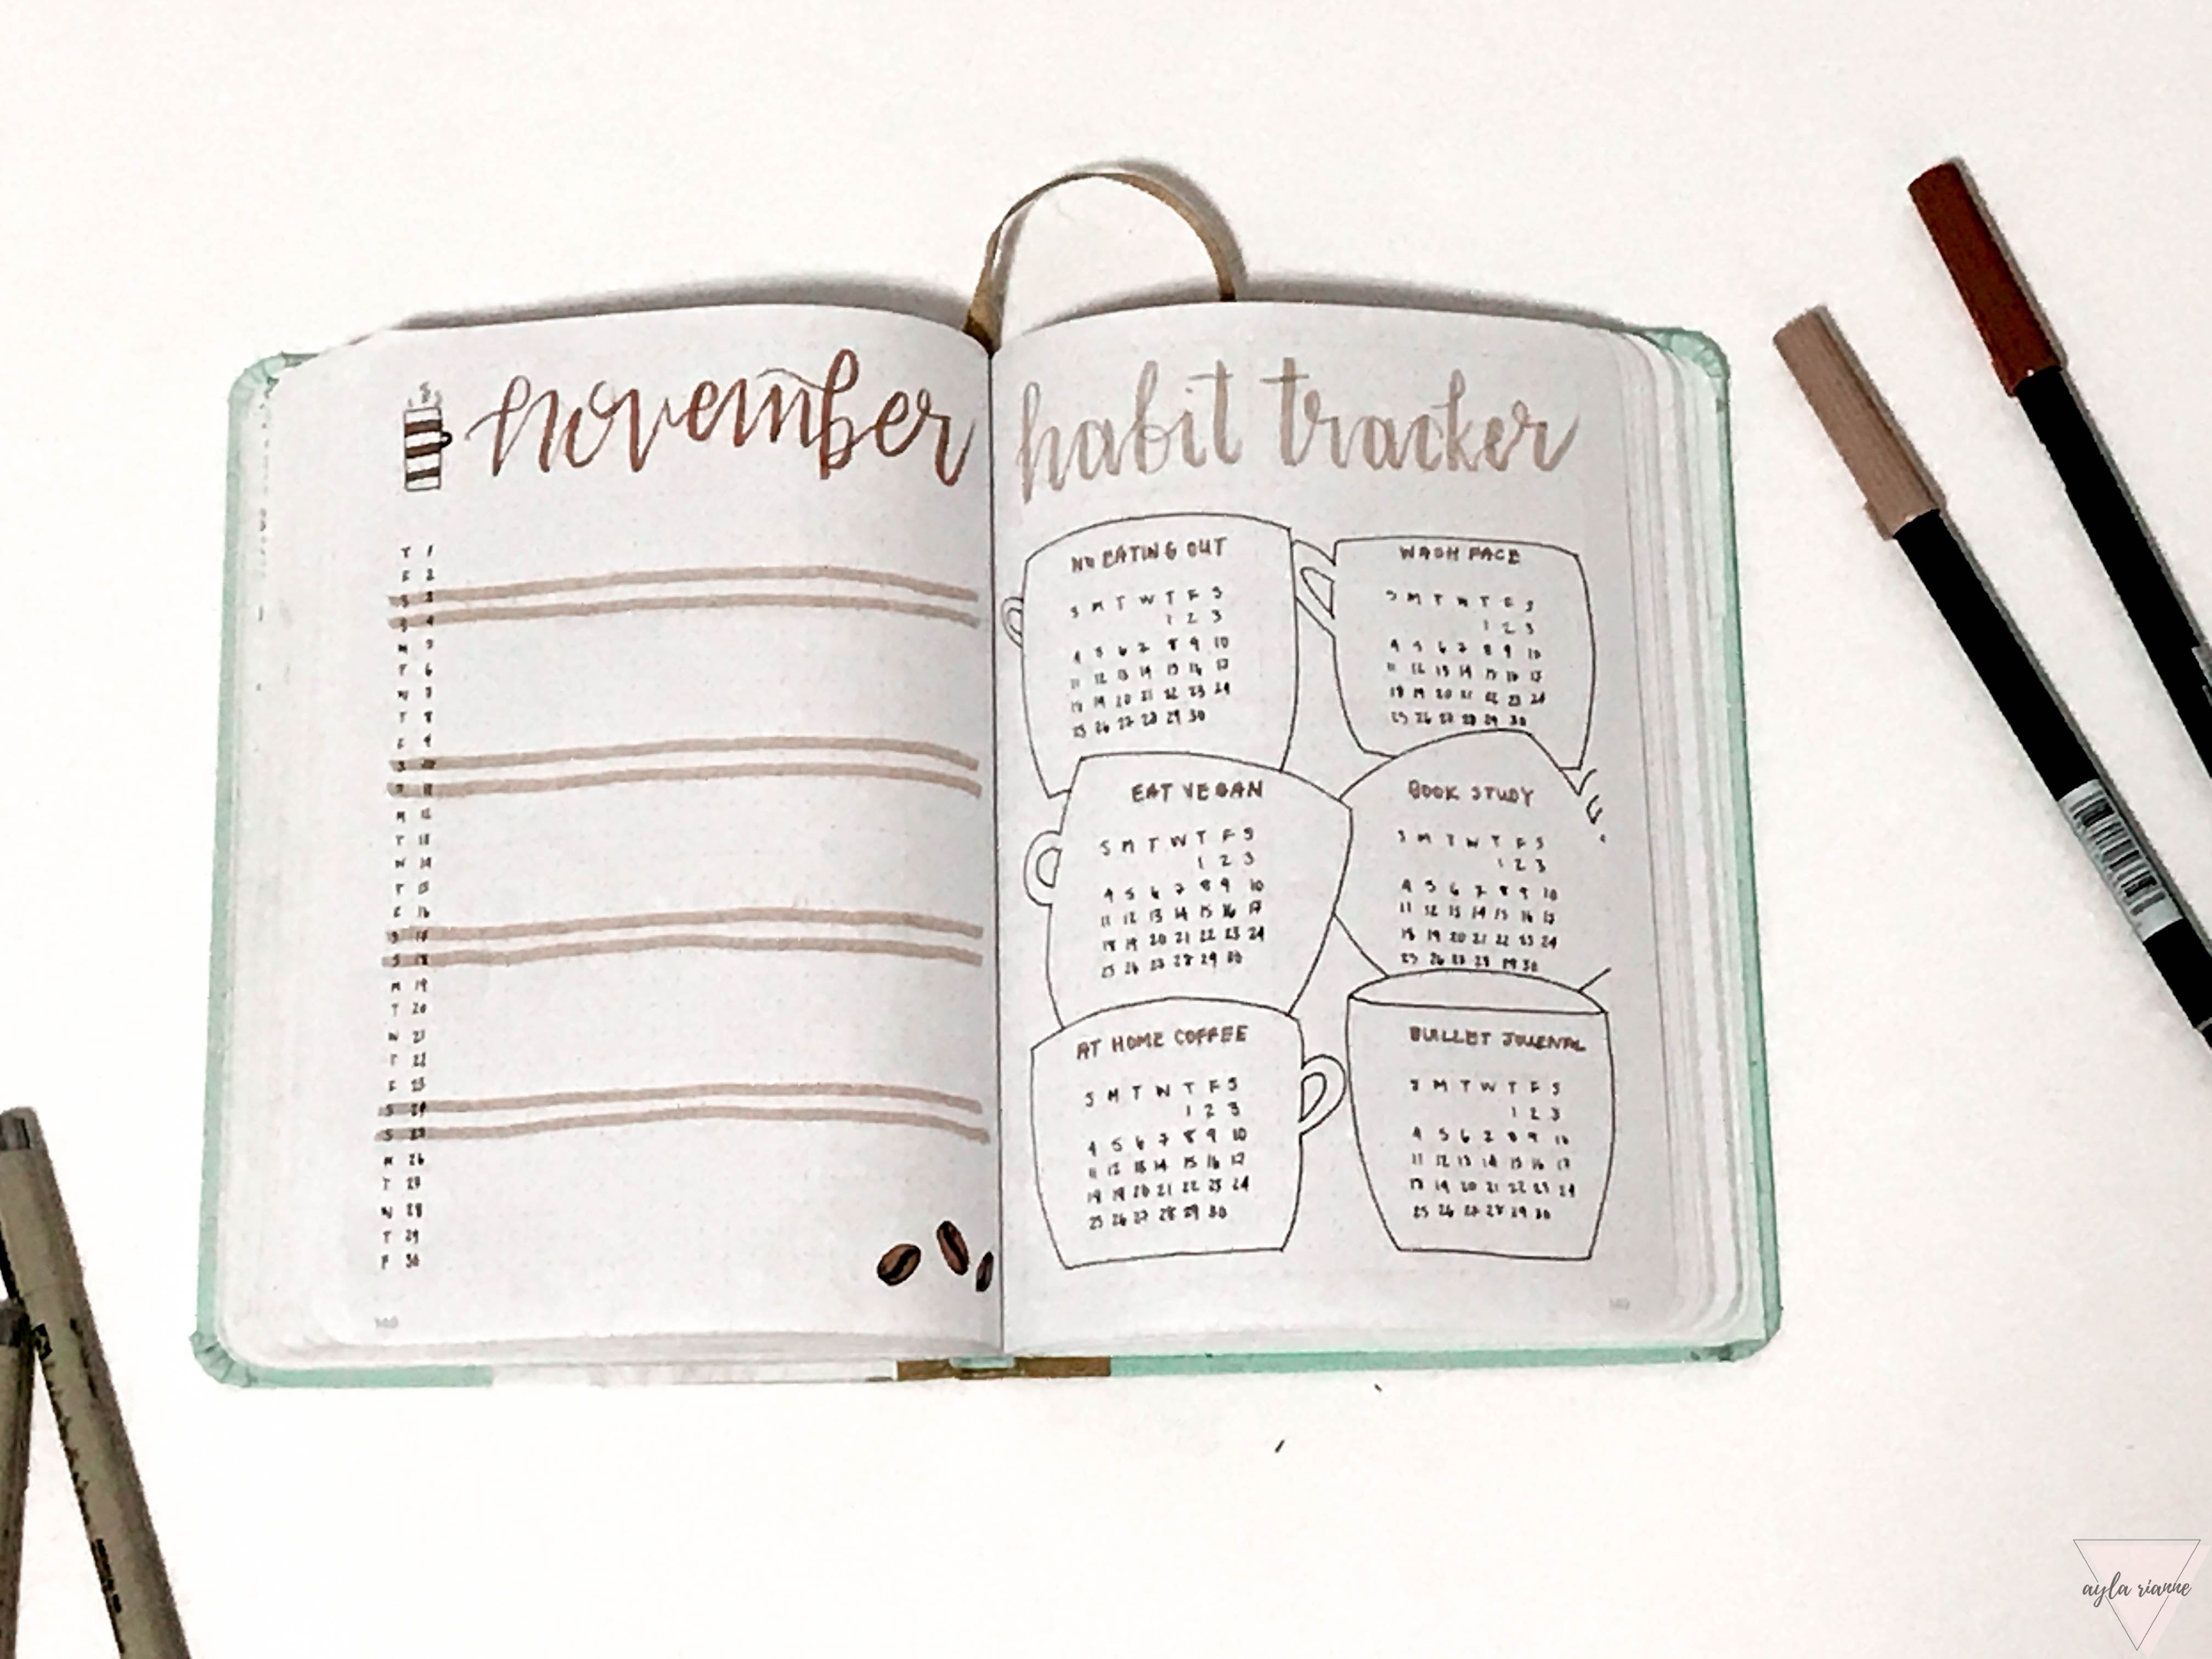 november
T 1
F 2
S 3
S 4
M 5
T 6
W 7
T 8
F 9
S 10
S 11
M 12
T 13
W 14
T 15
F 16
S 17
S 18
M 19
T 20
W 21
T 22
F 23
S 24
S 25
M 26
T 27
W 28
T 29
F 30
habit tracker
NO EATING OUT
S M T W T F S
1 2 3
4 5 6 7 8 9 10
11 12 13 14 15 16 17
18 19 20 21 22 23 24
25 26 27 28 29 30
WASH FACE
S M T W T F S
1 2 3
4 5 6 7 8 9 10
11 12 13 14 15 16 17
18 19 20 21 22 23 24
25 26 27 28 29 30
EAT VEGAN
S M T W T F S
1 2 3
4 5 6 7 8 9 10
11 12 13 14 15 16 17
18 19 20 21 22 23 24
25 26 27 28 29 30
BOOK STUDY
S M T W T F S
1 2 3
4 5 6 7 8 9 10
11 12 13 14 15 16 17
18 19 20 21 22 23 24
25 26 27 28 29 30
AT HOME COFFEE
S M T W T F S
1 2 3
4 5 6 7 8 9 10
11 12 13 14 15 16 17
18 19 20 21 22 23 24
25 26 27 28 29 30
BULLET JOURNAL
S M T W T F S
1 2 3
4 5 6 7 8 9 10
11 12 13 14 15 16 17
18 19 20 21 22 23 24
25 26 27 28 29 30
ayla rianne